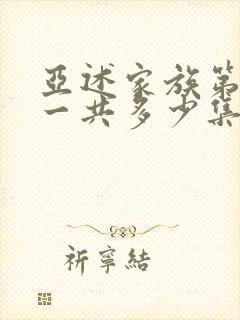 亞述家族第
一共多少集
祈寧結